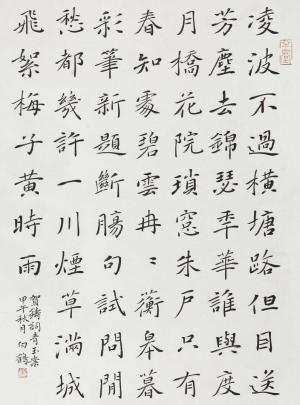 凌波不過橫塘路但目送
芳塵去錦瑟年華誰與度
月橋花院瑣窗朱戶只有
春知處碧雲冉冉蘅皋暮
彩筆新題斷腸句試問閒
愁都幾許一川煙草滿城
飛絮梅子黃時雨
賀鑄詞青玉案
甲午秋月白鶴